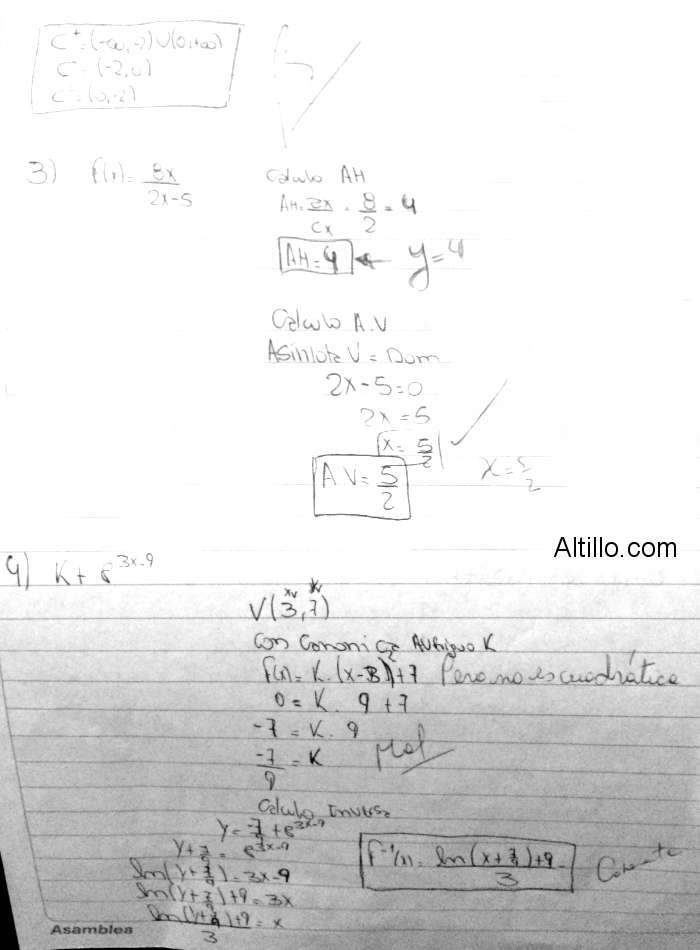 C⁺ = (-∞, -2) ∪ (0, +∞)
C⁻ = (-2, 0)
C⁰ = (0, -2)
3) f(x) = 8x / 2x-5
Calculo AH
AH = ax/cx = 8/2 = 4
AH = 4 ← y = 4
Calculo A.V
Asintota V = Dom
2x - 5 = 0
2x = 5
x = 5/2 ✓
AV = 5/2
x = 5/2
Altillo.com
4) K + e^(3x-9)
xv yv
V(3, 7)
Con Canonica Averiguo K
f(x) = K. (x-3) + 7 Pero no es cuadrática
0 = K. 9 + 7
-7 = K. 9
-7/9 = K
Mal
Calculo Inversa
y = -7/9 + e^(3x-9)
y + 7/9 = e^(3x-9)
ln(y + 7/9) = 3x - 9
ln(y + 7/9) + 9 = 3x
ln(y + 7/9) + 9 / 3 = x
f⁻¹(x) = ln(x + 7/9) + 9 / 3
Asamblea